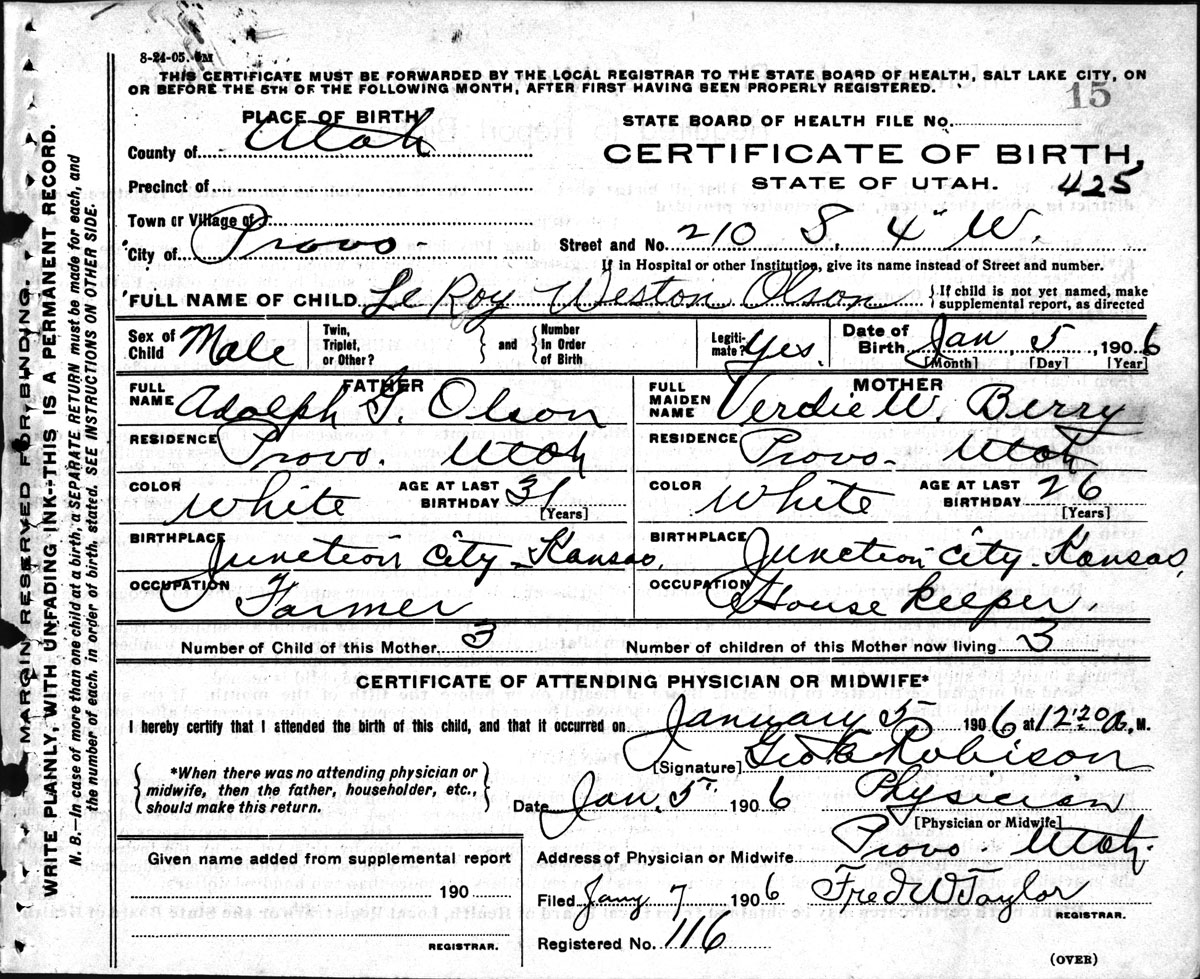 8-24-05. 5M
THIS CERTIFICATE MUST BE FORWARDED BY THE LOCAL REGISTRAR TO THE STATE BOARD OF HEALTH, SALT LAKE CITY, ON
OR BEFORE THE 5TH OF THE FOLLOWING MONTH, AFTER FIRST HAVING BEEN PROPERLY REGISTERED.
15
PLACE OF BIRTH
County of Utah
Precinct of
Town or Village of
City of Provo
STATE BOARD OF HEALTH FILE No.
CERTIFICATE OF BIRTH,
STATE OF UTAH. 425
Street and No. 210 S. 4" W.
If in Hospital or other Institution, give its name instead of Street and number.
FULL NAME OF CHILD Le Roy Weston Olson {If child is not yet named, make
supplemental report, as directed
Sex of Child Male
Twin, Triplet, or Other? } and { Number In Order of Birth
Legitimate? Yes.
Date of Birth Jan, 5, 1906
[Month] [Day] [Year]
FATHER
FULL NAME Adolph G. Olson
RESIDENCE Provo. Utah
COLOR White AGE AT LAST BIRTHDAY 31
[Years]
BIRTHPLACE Junction City - Kansas,
OCCUPATION Farmer
MOTHER
FULL MAIDEN NAME Verdie W. Berry
RESIDENCE Provo. Utah
COLOR White AGE AT LAST BIRTHDAY 26
[Years]
BIRTHPLACE Junction City - Kansas,
OCCUPATION House keeper
Number of Child of this Mother 3 Number of children of this Mother now living 3
CERTIFICATE OF ATTENDING PHYSICIAN OR MIDWIFE*
I hereby certify that I attended the birth of this child, and that it occurred on January 5 1906 at 12:20 M.
[Signature] Robison
{*When there was no attending physician or
midwife, then the father, householder, etc.,
should make this return.}
Date Jan. 5" 1906 Physician
[Physician or Midwife]
Address of Physician or Midwife Provo Utah.
Given name added from supplemental report
190
REGISTRAR.
Filed Jany 7 1906 Fred W Taylor
REGISTRAR.
Registered No. 116
(OVER)
MARGIN RESERVED FOR BINDING.
WRITE PLAINLY, WITH UNFADING INK--THIS IS A PERMANENT RECORD.
N. B.—In case of more than one child at a birth, a SEPARATE RETURN must be made for each, and
the number of each, in order of birth, stated. SEE INSTRUCTIONS ON OTHER SIDE.